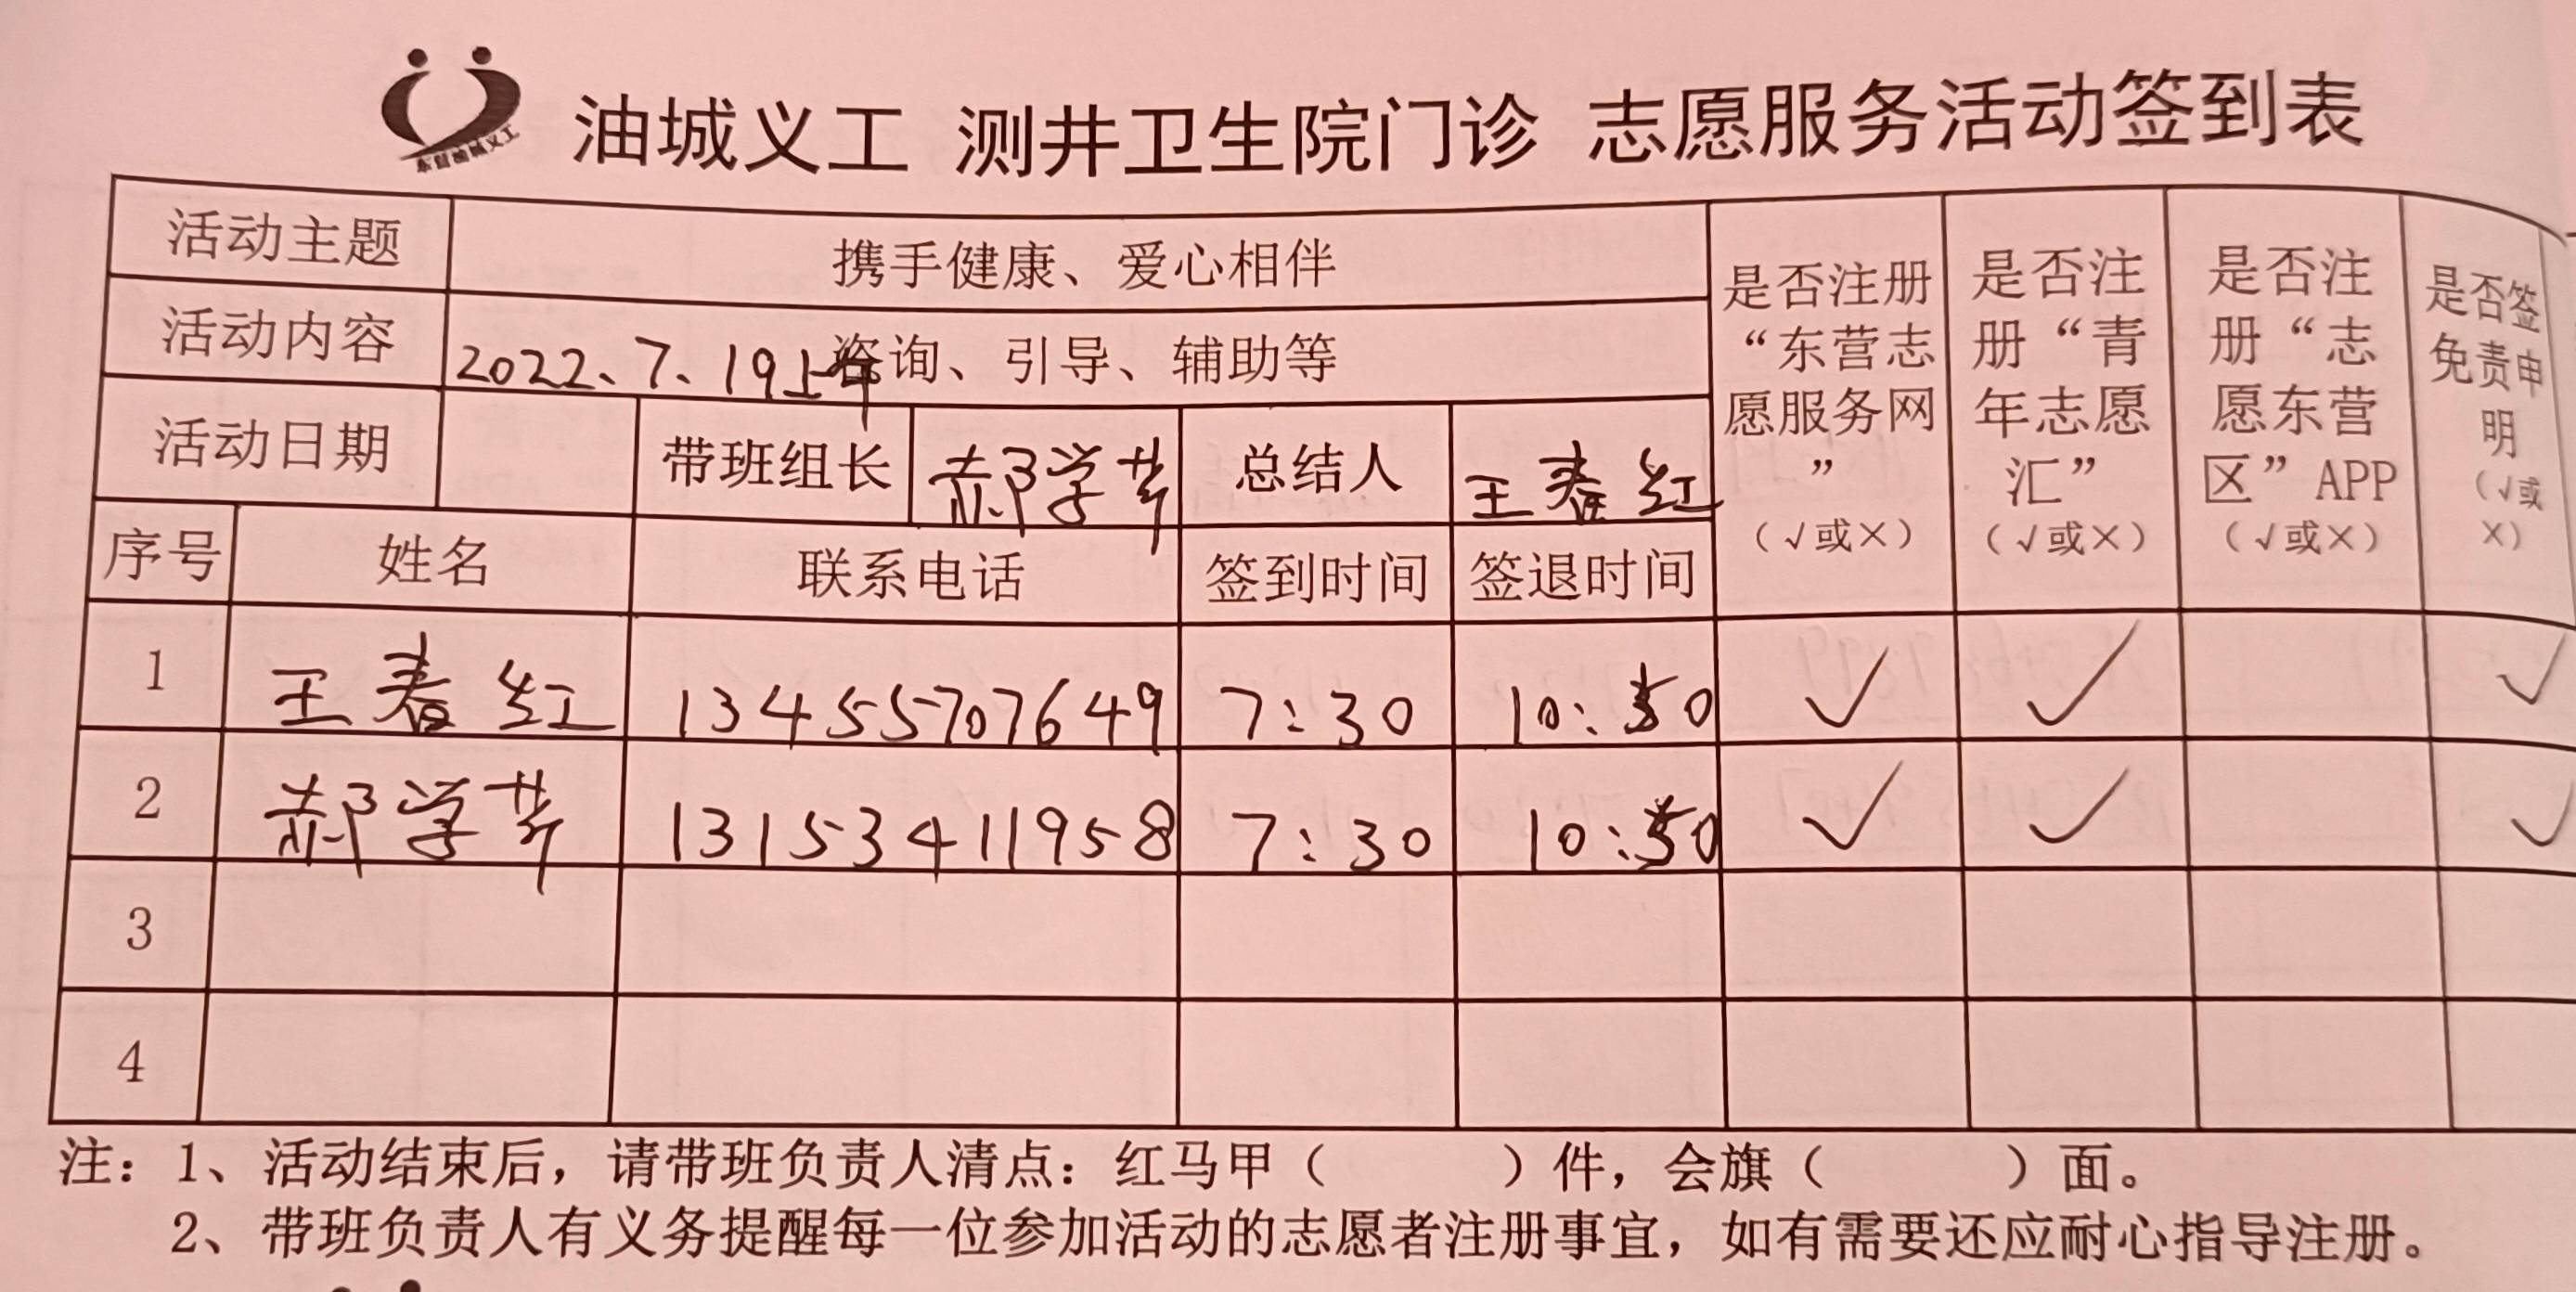 东营油城义工
油城义工 测井卫生院门诊 志愿服务活动签到表
活动主题 携手健康、爱心相伴
活动内容 咨询、引导、辅助等
2022、7、19上午
活动日期 带班组长 郝学芹 总结人 王春红
是否注册“东营志愿服务网”（√或×）
是否注册“青年志愿汇”（√或×）
是否注册“志愿东营区”APP（√或×）
是否签免责申明（√或×）
序号 姓名 联系电话 签到时间 签退时间
1 王春红 13455707649 7:30 10:50 √ √ √
2 郝学芹 13153411958 7:30 10:50 √ √ √
3
4
注：1、活动结束后，请带班负责人清点：红马甲（ ）件，会旗（ ）面。
2、带班负责人有义务提醒每一位参加活动的志愿者注册事宜，如有需要还应耐心指导注册。